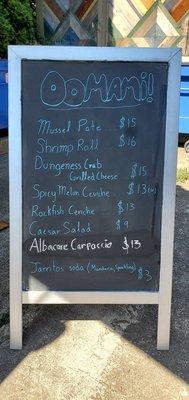 OoMAMi!!
Mussel Pate... $15
Shrimp Roll $16
Dungeness Crab
Grilled Cheese $15
Spicy Melon Ceviche $13 (v)
Rockfish Ceviche $13
Caesar Salad $9
Albacore Carpaccio $13
Jarritos soda (Mandarin, Sparkling) $3